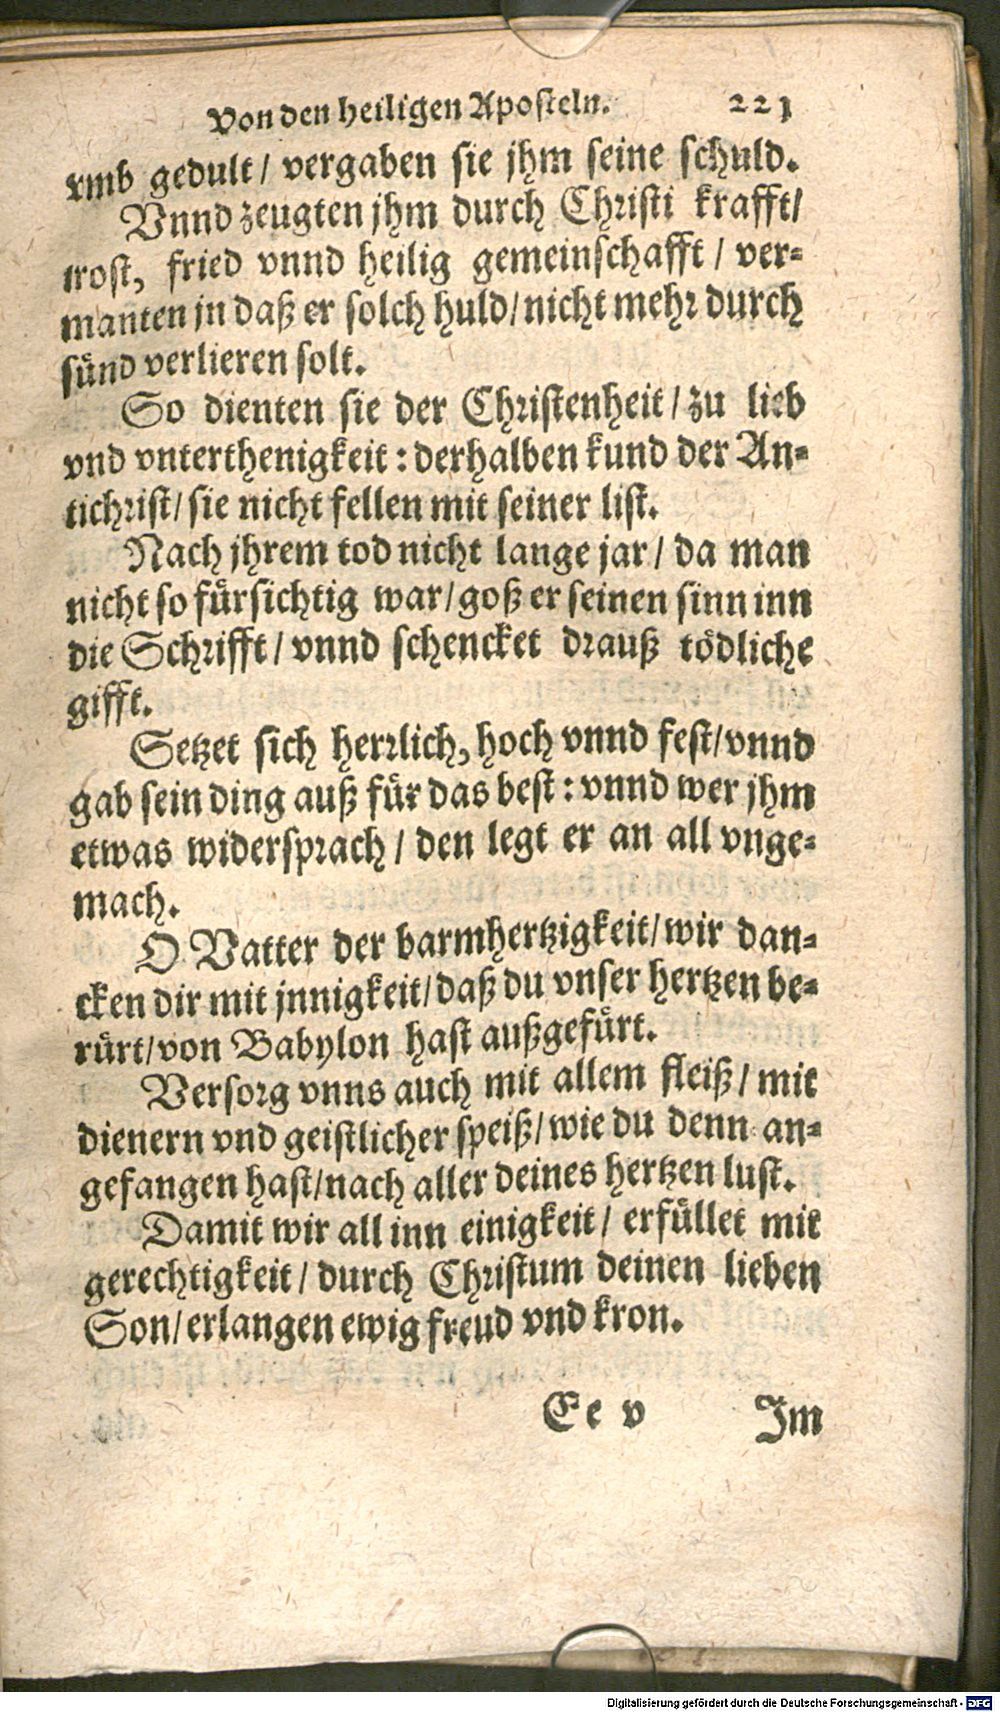 Von den heiligen Aposteln. 221
rmb gedult / vergaben sie jhm seine schuld.
Vnnd zeugten jhm durch Christi krafft /
trost, fried vnnd heilig gemeinschafft / ver-
manten jn daß er solch huld / nicht mehr durch
sünd verlieren solt.
So dienten sie der Christenheit / zu lieb
vnd vnterthenigkeit : derhalben kund der An-
tichrist / sie nicht fellen mit seiner list.
Nach jhrem tod nicht lange jar / da man
nicht so fürsichtig war / goß er seinen sinn inn
die Schrifft / vnnd schencket drauß tödliche
gifft.
Setzet sich herrlich, hoch vnnd fest / vnnd
gab sein ding auß für das best : vnnd wer jhm
etwas widersprach / den legt er an all vnge-
mach.
O Vatter der barmhertzigkeit / wir dan-
cken dir mit jnnigkeit / daß du vnser hertzen be-
rürt / von Babylon hast außgefürt.
Versorg vnns auch mit allem fleiß / mit
dienern vnd geistlicher speiß / wie du denn an-
gefangen hast / nach aller deines hertzen lust.
Damit wir all inn einigkeit / erfüllet mit
gerechtigkeit / durch Christum deinen lieben
Son / erlangen ewig freud vnd kron.
Ee v Im
Digitalisierung gefördert durch die Deutsche Forschungsgemeinschaft - DFG